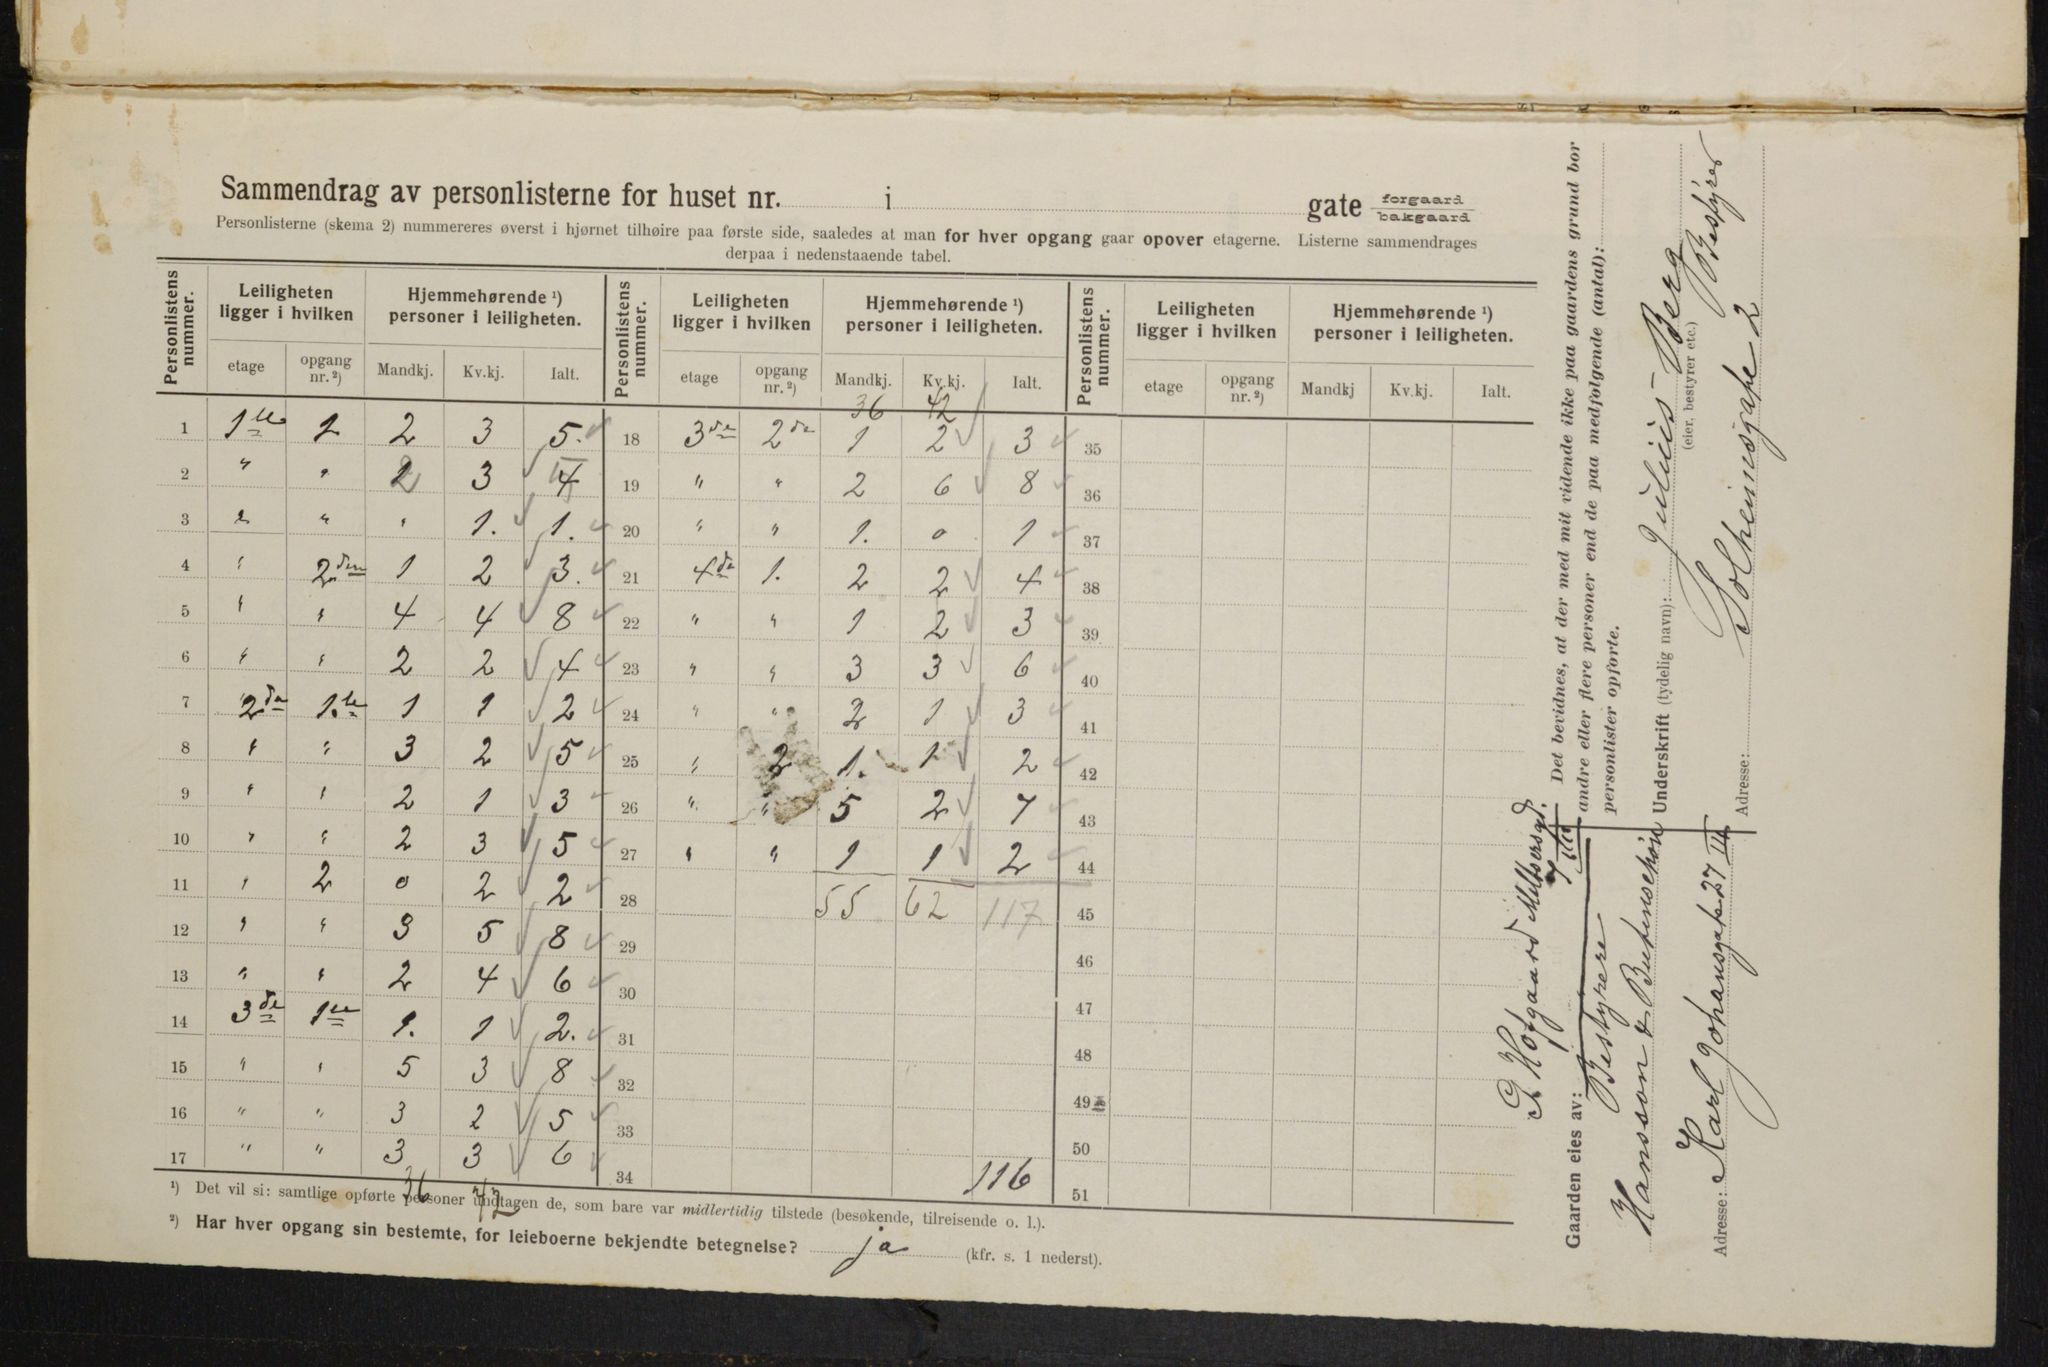 Sammendrag av personlisterne for huset nr. i gate forgaard
bakgaard
Personlisterne (skema 2) nummereres øverst i hjørnet tilhøire paa første side, saaledes at man for hver opgang gaar opover etagerne. Listerne sammendrages
derpaa i nedenstaaende tabel.
Personlistens nummer. Leiligheten ligger i hvilken Hjemmehørende ¹) personer i leiligheten. Personlistens nummer. Leiligheten ligger i hvilken Hjemmehørende ¹) personer i leiligheten. Personlistens nummer. Leiligheten ligger i hvilken Hjemmehørende ¹) personer i leiligheten.
etage opgang nr. ²) Mandkj. Kv.kj. Ialt. etage opgang nr. ²) Mandkj. Kv.kj. Ialt. etage opgang nr. ²) Mandkj Kv.kj. Ialt.
36 42
1 1ste 1 2 3 5. 18 3de 2de 1 2 3 35
2 " " 2 3 4 19 " " 2 6 8 36
3 " " " 1. 1. 20 " " 1. 0 1 37
4 " 2den 1 2 3. 21 4de 1. 2 2 4 38
5 " " 4 4 8 22 " " 1 2 3 39
6 " " 2 2 4 23 " " 3 3 6 40
7 2de 1.ste 1 1 2 24 " " 2 1 3 41
8 " " 3 2 5 25 " 2 1. 1 2 42
9 " " 2 1 3 26 " " 5 2 7 43
10 " " 2 3 5 27 " " 1 1 2 44
11 " 2 0 2 2 28 55 62 117 45
12 " " 3 5 8 29 46
13 " " 2 4 6 30 47
14 3de 1ste 1. 1 2. 31 48
15 " " 5 3 8 32 49
16 " " 3 2 5 33 50
17 " " 3 3 6 34 116 51
36 42
¹) Det vil si: samtlige opførte personer undtagen de, som bare var midlertidig tilstede (besøkende, tilreisende o. l.).
²) Har hver opgang sin bestemte, for leieboerne bekjendte betegnelse? ja (kfr. s. 1 nederst).
Det bevidnes, at der med mit vidende ikke paa gaardens grund bor
andre eller flere personer end de paa medfølgende (antal):
personlister opførte.
Underskrift (tydelig navn): Julius Berg Bestyrer
(eier, bestyrer etc.)
Adresse: Solheimsgate 2
Hofgaard
Gaarden eies av: Bestyrere
Hansson &
Adresse: Karl Johansgate 27 III